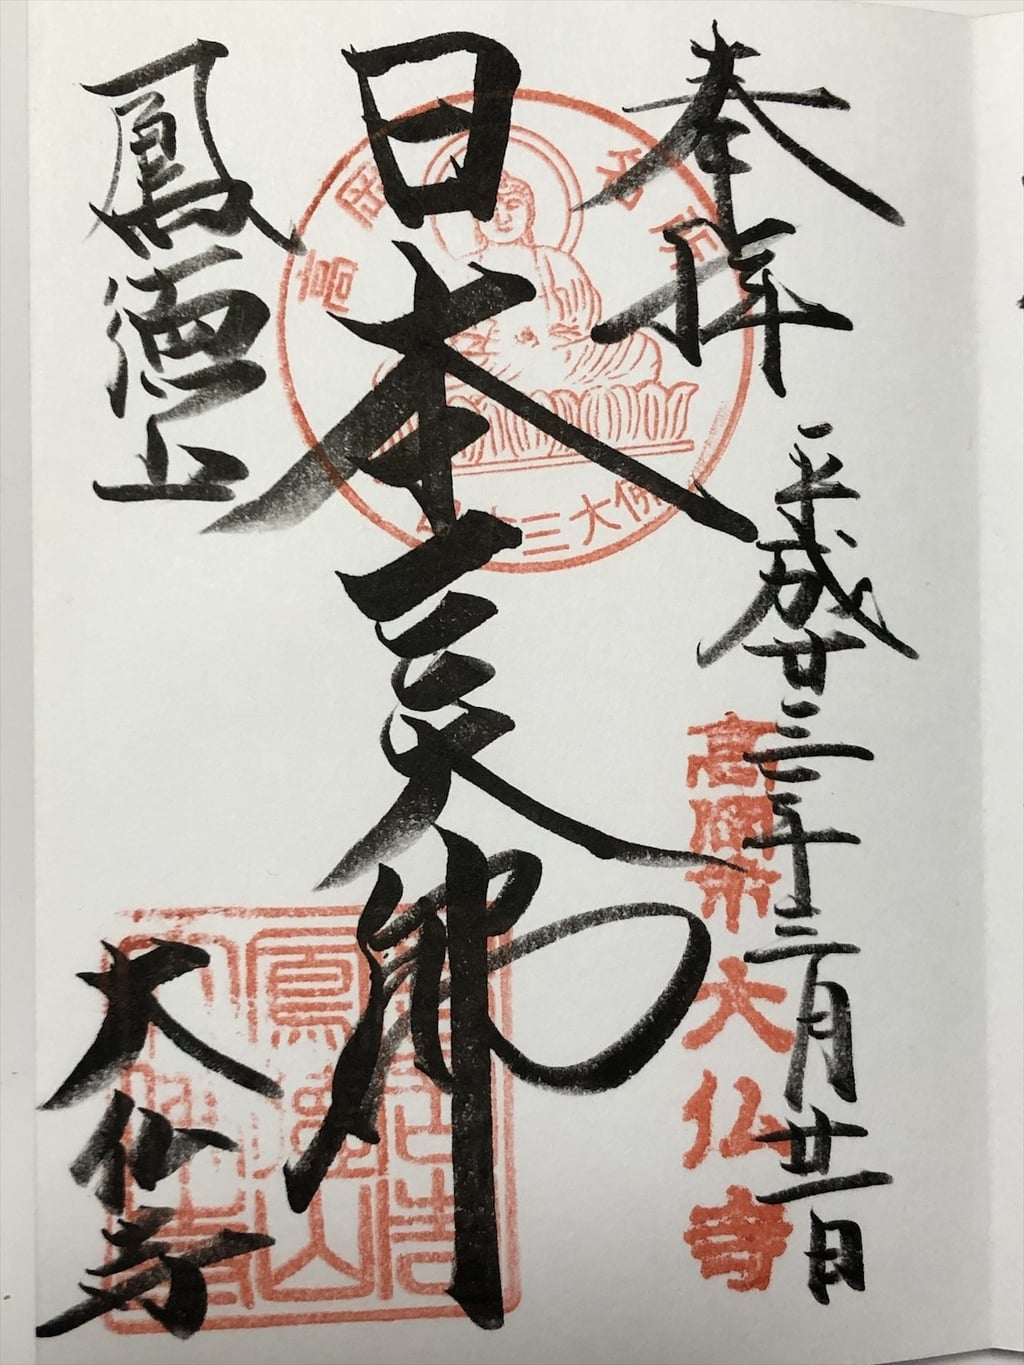 奉拝
平成廿三年三月廿一日
高岡市大仏寺
高岡名所
三大佛
日本三大佛
鳳徳山
鳳徳山
大佛寺
大仏寺